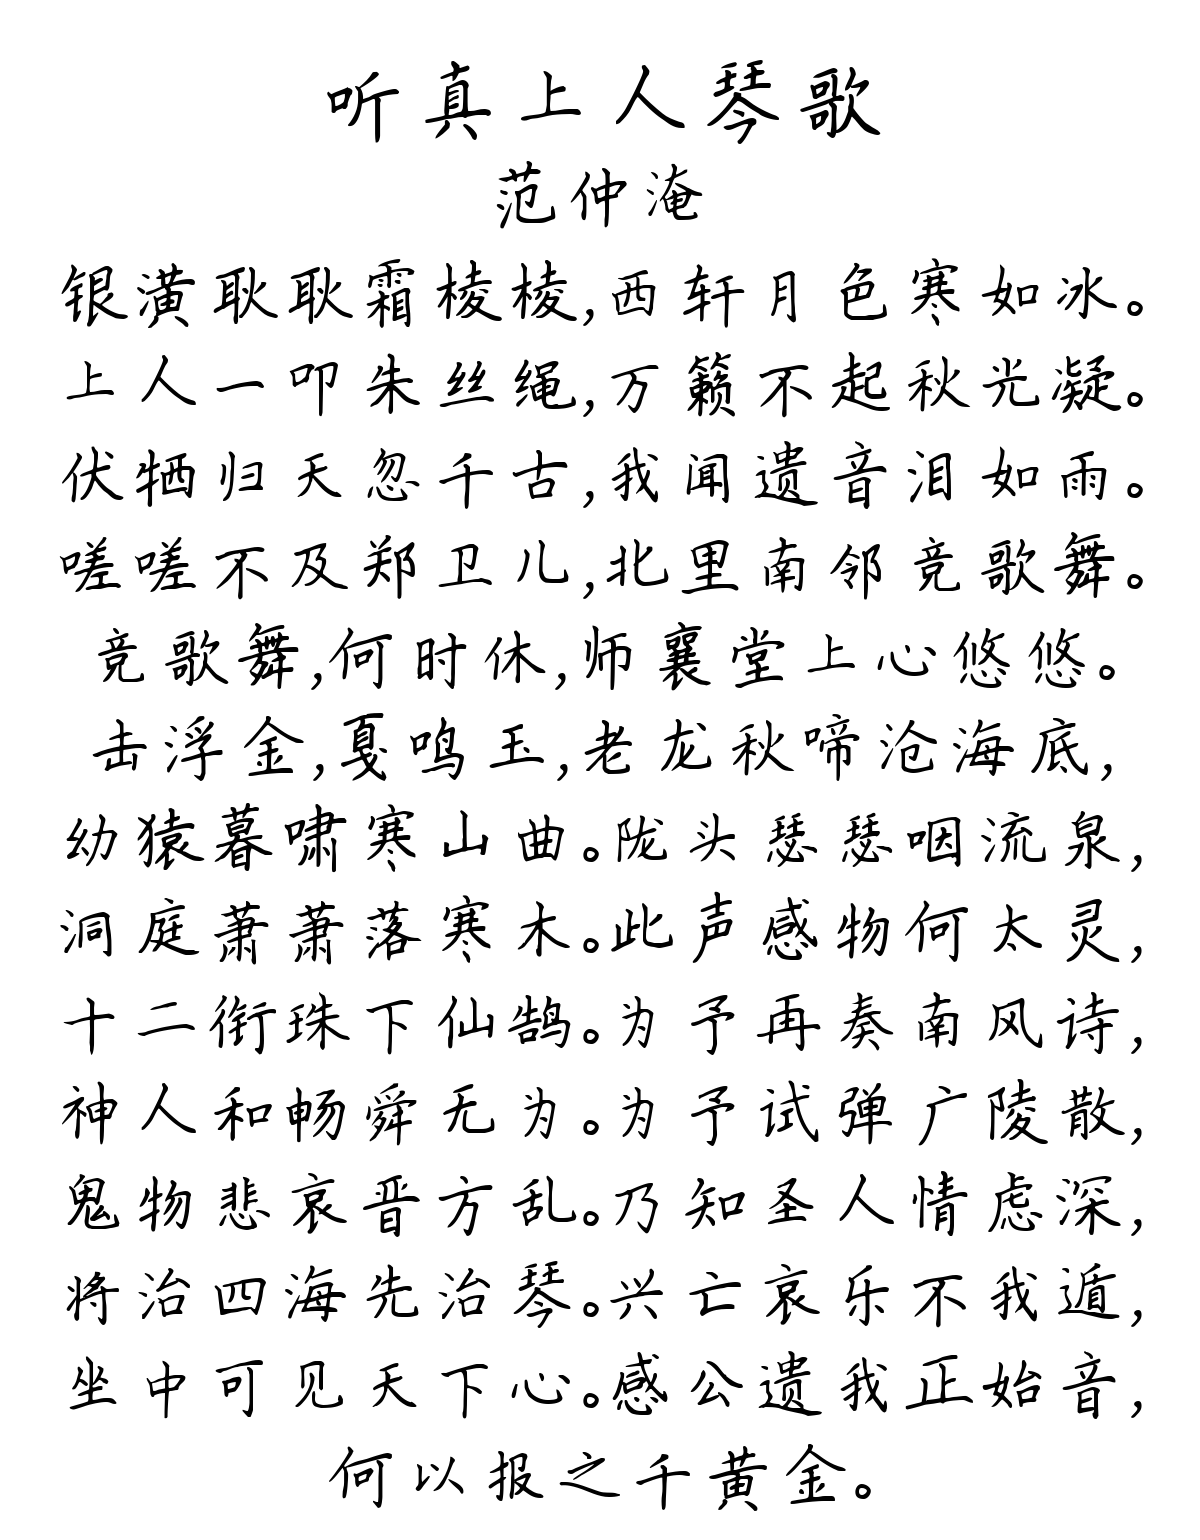 听真上人琴歌
范仲淹
银潢耿耿霜棱棱,西轩月色寒如冰。
上人一叩朱丝绳,万籁不起秋光凝。
伏牺归天忽千古,我闻遗音泪如雨。
嗟嗟不及郑卫儿,北里南邻竞歌舞。
竞歌舞,何时休,师襄堂上心悠悠。
击浮金,戛鸣玉,老龙秋啼沧海底,
幼猿暮啸寒山曲。陇头瑟瑟咽流泉,
洞庭萧萧落寒木。此声感物何太灵,
十二衔珠下仙鹄。为予再奏南风诗,
神人和畅舜无为。为予试弹广陵散,
鬼物悲哀晋方乱。乃知圣人情虑深,
将治四海先治琴。兴亡哀乐不我遁,
坐中可见天下心。感公遗我正始音,
何以报之千黄金。